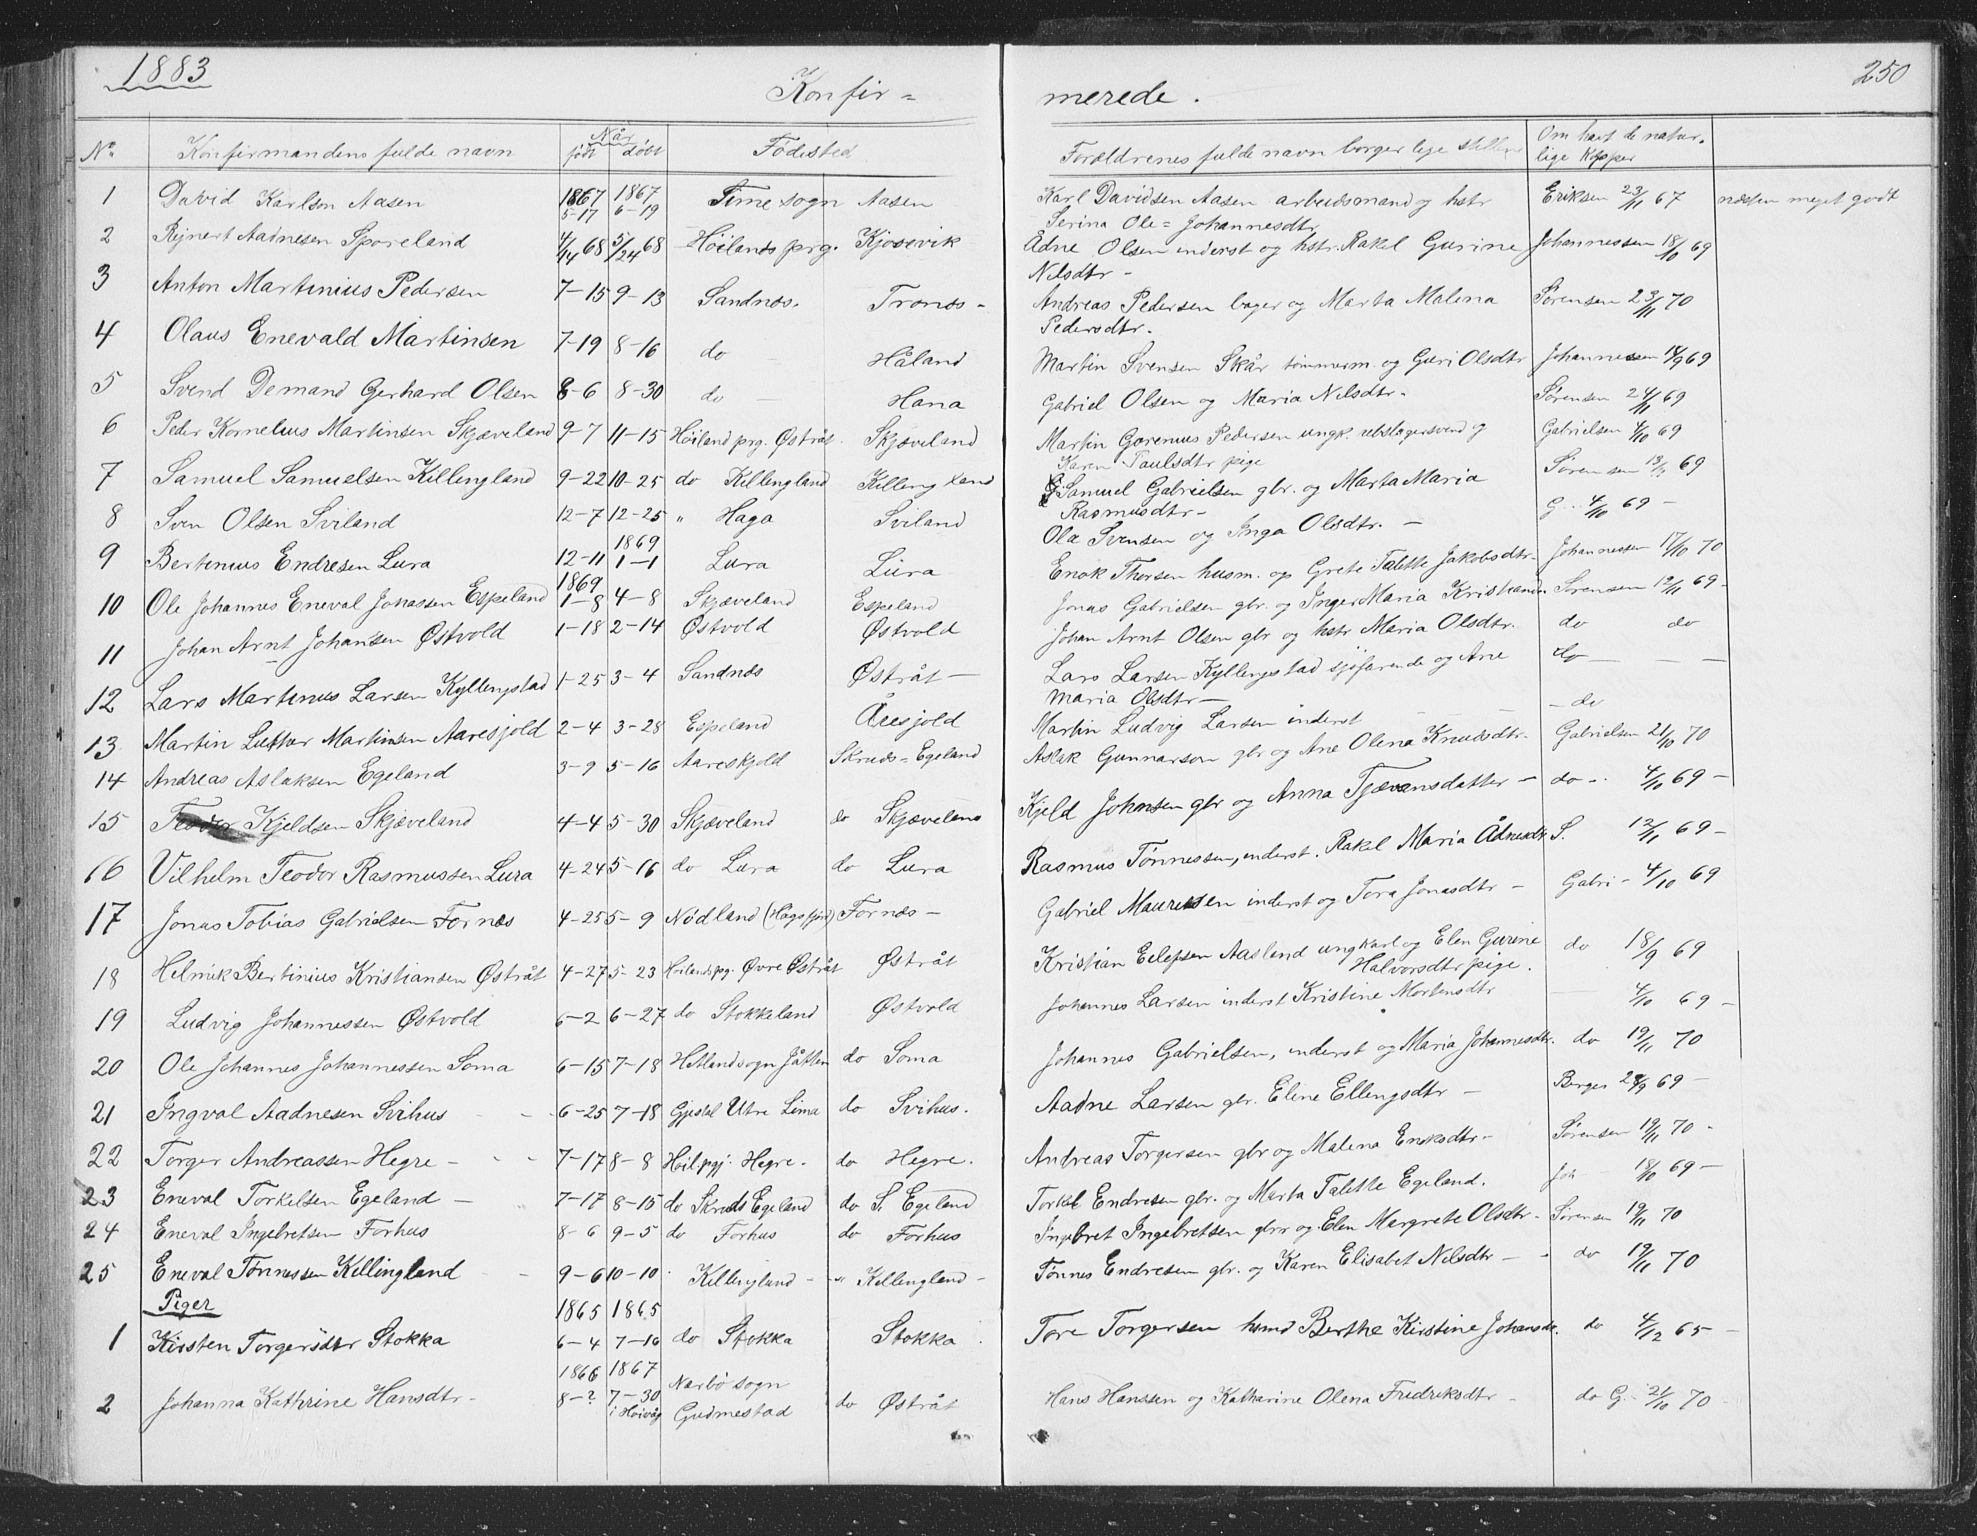 1883
250
Konfir =
merede .
No Konfirmandens fulde navn Når født døbt Fødested Forældrenes fulde navn borgerlige stilling Om havt de naturlige Kopper
1 David Karlson Aasen 1867 5-17 1867 6-19 Time sogn Aasen Karl Davidsen Aasen arbeidsmand og hstr Eriksen 23/11 67 næsten meget godt
Serina Ole= Johannesdtr
2 Rejnert Aadnesen Sporeland 4/14 68 5/24 68 Höilands prg. Kjosevik Ådne Olsen inderst og hstr. Rakel Gurine Johannessen 18/10 69
Nilsdtr -
3 Anton Martinius Pedersen 7-15 9-13 Sandnæs. Tronæs - Andreas Pedersen bager og Marta Malena Sørensen 23/11 70
Pedersdtr.
4 Olaus Enevald Martinsen 7-19 8-16 do Håland Martin Svensen Skår tömmerm. og Guri Olsdtr Johannessen 69
5 Svend Demand Gerhard Olsen 8-6 8-30 do Hana Gabriel Olsen og Maria Nilsdtr. Sörensen 24/11 69
6 Peder Kornelius Martinsen Skjæveland 9-7 11-15 Höiland prg. Østråt. Skjæveland Martin Gorenius Pedersen ungk. rebslagersvend og Gabrielsen 4/10 69
Karen Paulsdtr pige
7 Samuel Samuelsen Killengland 9-22 10-25 do Killengland Killengland Samuel Gabrielsen gbr. og Marta Maria Sörensen 69
Rasmusdtr -
8 Sven Olsen Sviland 12-7 12-25 " Haga Sviland Ola Svensen og Inga Olsdtr. - G. 4/10 69 -
9 Bertinius Endresen Lura 12-11 1869 1-1 Lura Lura Enok Thorsen husm. og Grete Talette Jakobsdtr. Johannessen 17/10 70
10 Ole Johannes Eneval Jonassen Espeland 1869 1-8 4-8 Skjæveland Espeland Jonas Gabrielsen gbr. og Inger Maria Kristiansd. Sørensen 12/11 69 -
11 Johan Arnt Johansen Østvold 1-18 2-14 Østvold Østvold Johan Arnt Olsen gbr og hstr Maria Olsdtr. do do
12 Lars Martinus Larsen Kyllengstad 1-25 3-4 Sandnæs Østråt - Lars Larsen Kyllengstad sjöfarende og Ane do - - -
Maria Olsdtr -
13. Martin Luther Martinsen Aaresjold 2-4 3-28 Espeland Åresjold Martin Ludvig Larsen inderst - - - do
14 Andreas Aslaksen Egeland 3-9 5-16 Aareskjold Skruds=Egeland Aslak Gunnarson gbr og Ane Olena Knudsdtr. Gabrielsen 21/10 70
15 Teodor Kjeldsen Skjæveland 4-4 5-30 Skjæveland do Skjæveland Kjeld Johnsen gbr og Anna Tjævansdatter - do - 4/10 69 -
16 Vilhelm Teodor Rasmussen Lura 4-24 5-16 do Lura do Lura Rasmus Tønnessen, inderst. Rakel Maria Ådnesdtr S. 12/11 69 -
17 Jonas Tobias Gabrielsen Fornæs 4-25 5-9 Nödland (Högsfjord) Fornæs - Gabriel Mauritsen inderst og Tora Jonasdtr - Gabri - 4/10 69
18 Helmik Bertinius Kristiansen Østråt 4-27 5-23 Höilandspg. Øvre Østråt Østråt Kristian Eilefsen Aasland ungkarl og Elen Gurine do 18/9 69
Halvorsdtr pige.
19 Ludvig Johannessen Østvold 6-2 6-27 do Stokkeland Østvold Johannes Larsen inderst Kristine Mortensdtr 4/10 69 -
20 Ole Johannes Johannessen Soma 6-15 7-18 Hetlandsogn Jåtten do Soma Johannes Gabrielsen, inderst og Maria Johannesdtr. do 19/11 70
21 Ingval Aadnesen Svihus 6-25 7-18 Gjestal Utre Lima do Svihus. Aadne Larsen gbr. Eline Ellengsdtr - Berger 28/9 69 -
22 Torger Andreassen Hegre - 7-17 8-8 Höil.pgj. Hegre. do Hegre. Andreas Torgersen gbr og Malena Enoksdtr - Sörensen 19/11 70 -
23 Eneval Torkelsen Egeland - 7-17 8-15 do Skruds Egeland do S. Egeland Torkel Endresen gbr. og Marta Talette Egeland. Joh 18/10 69 -
24 Eneval Ingebretsen Forhus 8-6 9-5 do Forhus do Forhus Ingebret Ingebretsen gbr og Elen Margrete Olsdtr. Sörensen 19/11 70
25 Eneval Tönnessen Killingland 9-6 10-10 Killengland - " Killengland - Tønnes Endresen gbr. og Karen Elisabet Nilsdtr - do 19/11 70
Piger
1 Kirsten Torgersdtr Stokka 1865 6-4 1865 7-16 do Stokka Stokka Tore Torgersen hmd Berthe Kirstine Johansdtr. do 4/12 65 -
2 Johanna Kathrine Hansdtr - 1866 8-? 1867 7-30 i Höivåg Nærbö sogn Gudmestad do Østråt Hans Hanssen og Katharine Olena Fredriksdtr - do G. 21/10 70